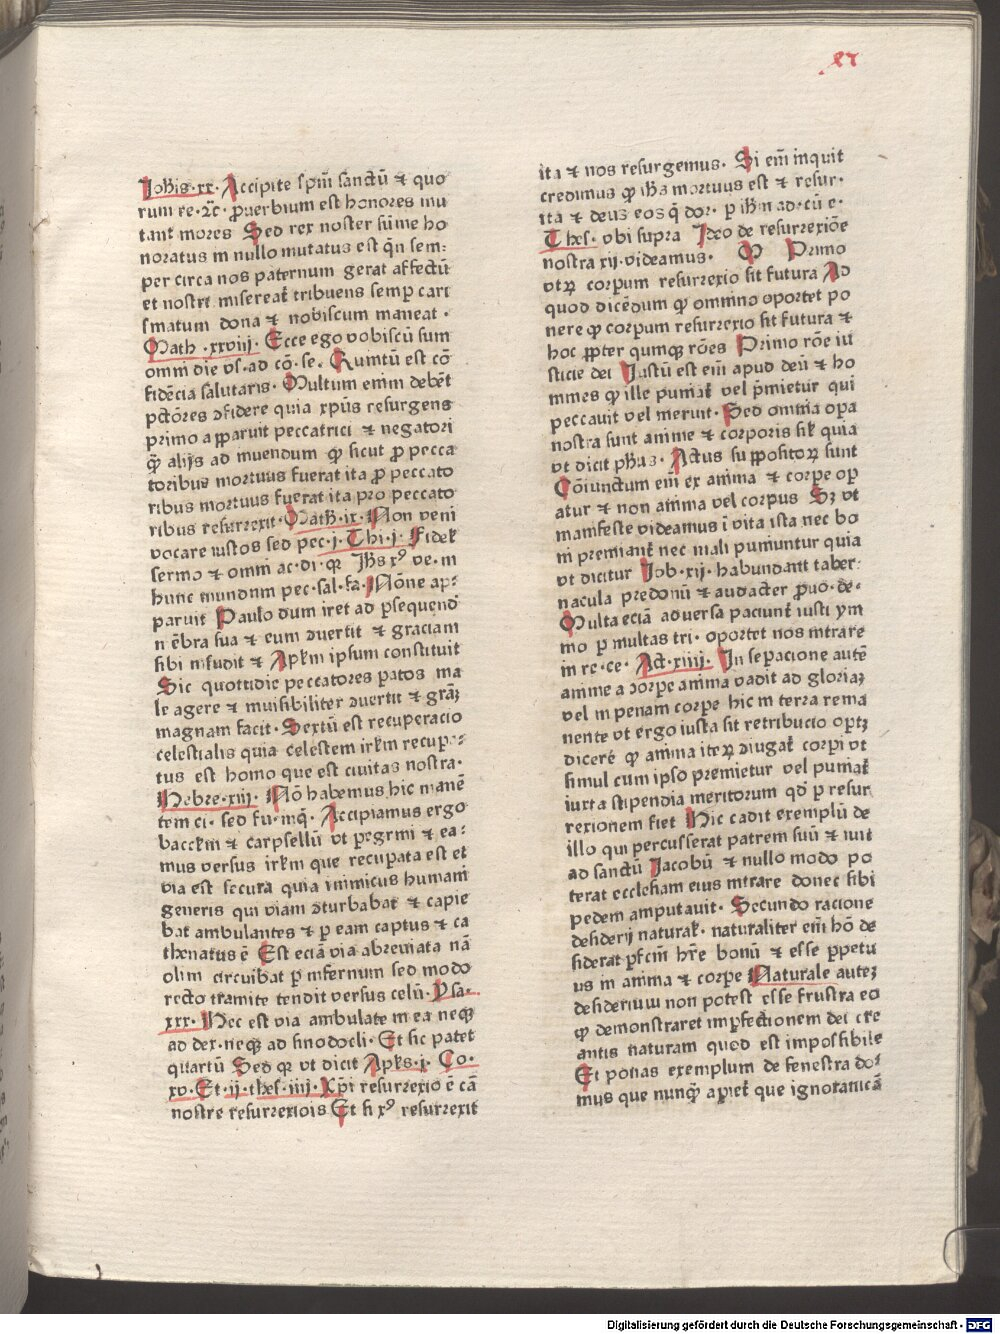 Joħis·xx· Accipite spm̄ sanctū ⁊ quo
rum re·⁊c̄· ꝓuerbium est honores mu
tant mores Sed rex noster sūme ho
noratus in nullo mutatus est qn̄ sem⸗
per circa nos paternum gerat affectū
et nostri misereat᷑ tribuens semꝑ cari
smatum dona ⁊ nobiscum maneat·
Math·xxviij· Ecce ego vobiscū sum
omni die vs·ad cō·se· Quintū est cō
fidēcia salutaris· Multum enim debēt
pctōres ↄfidere quia xpūs resurgens
primo apparuit peccatrici ⁊ negatori
qm̄ alijs ad inuendum ꝙ sicut ꝓ pecca
toribus mortuus fuerat ita ꝓ peccato
ribus mortuus fuerat ita pro peccato
ribus resurrexit· Math·ix· Non veni
vocare iustos sed pec·j·Thi·j· Fidel᷑
sermo ⁊ omni ac·di·qꝛ Jħs xꝰ ve·in
hunc mundum pec·sal·fa· Nōne ap⸗
paruit Paulo dum iret ad ꝑsequend̄
n ēbra sua ⁊ eum ↄuertit ⁊ graciam
sibi infudit ⁊ Apłm ipsum constituit
Sic quottidie peccatores ꝑatos ma
le agere ⁊ inuisibiliter ↄuertit ⁊ grāꝫ
magnam facit· Sextū est recuperacio
celestialis quia celestem irłm recuꝑa⸗
tus est homo que est ciuitas nostra·
Hebre·xiij· Nō habemus hic manē
tem ci· sed fu·inq̄· Accipiamus ergo
baccłm ⁊ carpsellū vt ꝑegrini ⁊ ea⸗
mus versus irłm que recuꝑata est et
via est secura quia inimicus humani
generis qui viam ↄturbabat ⁊ capie
bat ambulantes ⁊ ꝑ eam captus ⁊ ca
thenatus ē Est eciā via abreuiata nā
olim circuibat ꝑ infernum sed modo
recto tramite tendit versus celū· Psa·
xxx· Hec est via ambulate in ea neqꝫ
ad dex·neqꝫ ad sinodocli· Et sic patet
quartū Sed qꝛ vt dicit Apłs·j·Co·
xv·Et·ij·thes·iiij· Xp̄i resurrexio ē cā
nostre resurrexiōis Et si xꝰ resurrexit
ita ⁊ nos resurgemus· Si em̄ inquit
credimus ꝙ iħs mortuus est ⁊ resur·
ita ⁊ deus eos q̄ dor· ꝑ iħm ad·cū e·
Thes· vbi supra Ideo de resurrexiōe
nostra xij·videamus· Primo
vtꝝ corpum resurrexio sit futura Ad
quod dicēdum ꝙ omnino oportet po
nere ꝙ corpum resurrexio sit futura ⁊
hoc ꝓpter quinqꝫ rōes Primo rōe iu
sticie dei Justū est em̄ apud deū ⁊ ho
mines ꝙ ille puniat᷑ vel p̄mietur qui
peccauit vel meruit· Sed omnia oꝑa
nostra sunt anime ⁊ corporis sił quia
vt dicit pħus· Actus suppositoꝝ sunt
Cōiunctum em̄ ex anima ⁊ corpe oꝑ
atur ⁊ non anima vel corpus Sꝫ vt
manifeste videamus ī vita ista nec bo
ni premiant᷑ nec mali puniuntur quia
vt dicitur Job·xij· habundant taber⸗
nacula predonū ⁊ audacter ꝓuo·de·
Multa eciā aduersa paciunt᷑ iusti ym
mo ꝑ multas tri· oportet nos intrare
in re·ce· Act·xiiij· In sepacione autē
anime a corpe anima vadit ad gloriaꝫ
vel in penam corpe hic in terra rema
nente vt ergo iusta sit retribucio oꝑtꝫ
dicere ꝙ anima iteꝝ ↄiugat᷑ corpi vt
simul cum ipso premietur vel puniat᷑
iuxta stipendia meritorum qd̄ ꝑ resur
rexionem fiet Hic cadit exemplū de
illo qui percusserat patrem suū ⁊ iuit
ad sanctū Jacobū ⁊ nullo modo po
terat ecclesiam eius intrare donec sibi
pedem amputauit· Secundo racione
desiderij natural᷑· naturaliter em̄ hō de
siderat ꝑfcm̄ hr̄e bonū ⁊ esse ꝑpetu
us in anima ⁊ corpe Naturale auteꝫ
desiderium non potest esse frustra eo
ꝙ demonstraret imꝑfectionem dei cre
antis naturam quod est impossibile
Et ponas exemplum de fenestra do⸗
mus que nunqͣ aꝑiet᷑ que ignorancia
Digitalisierung gefördert durch die Deutsche Forschungsgemeinschaft · DFG